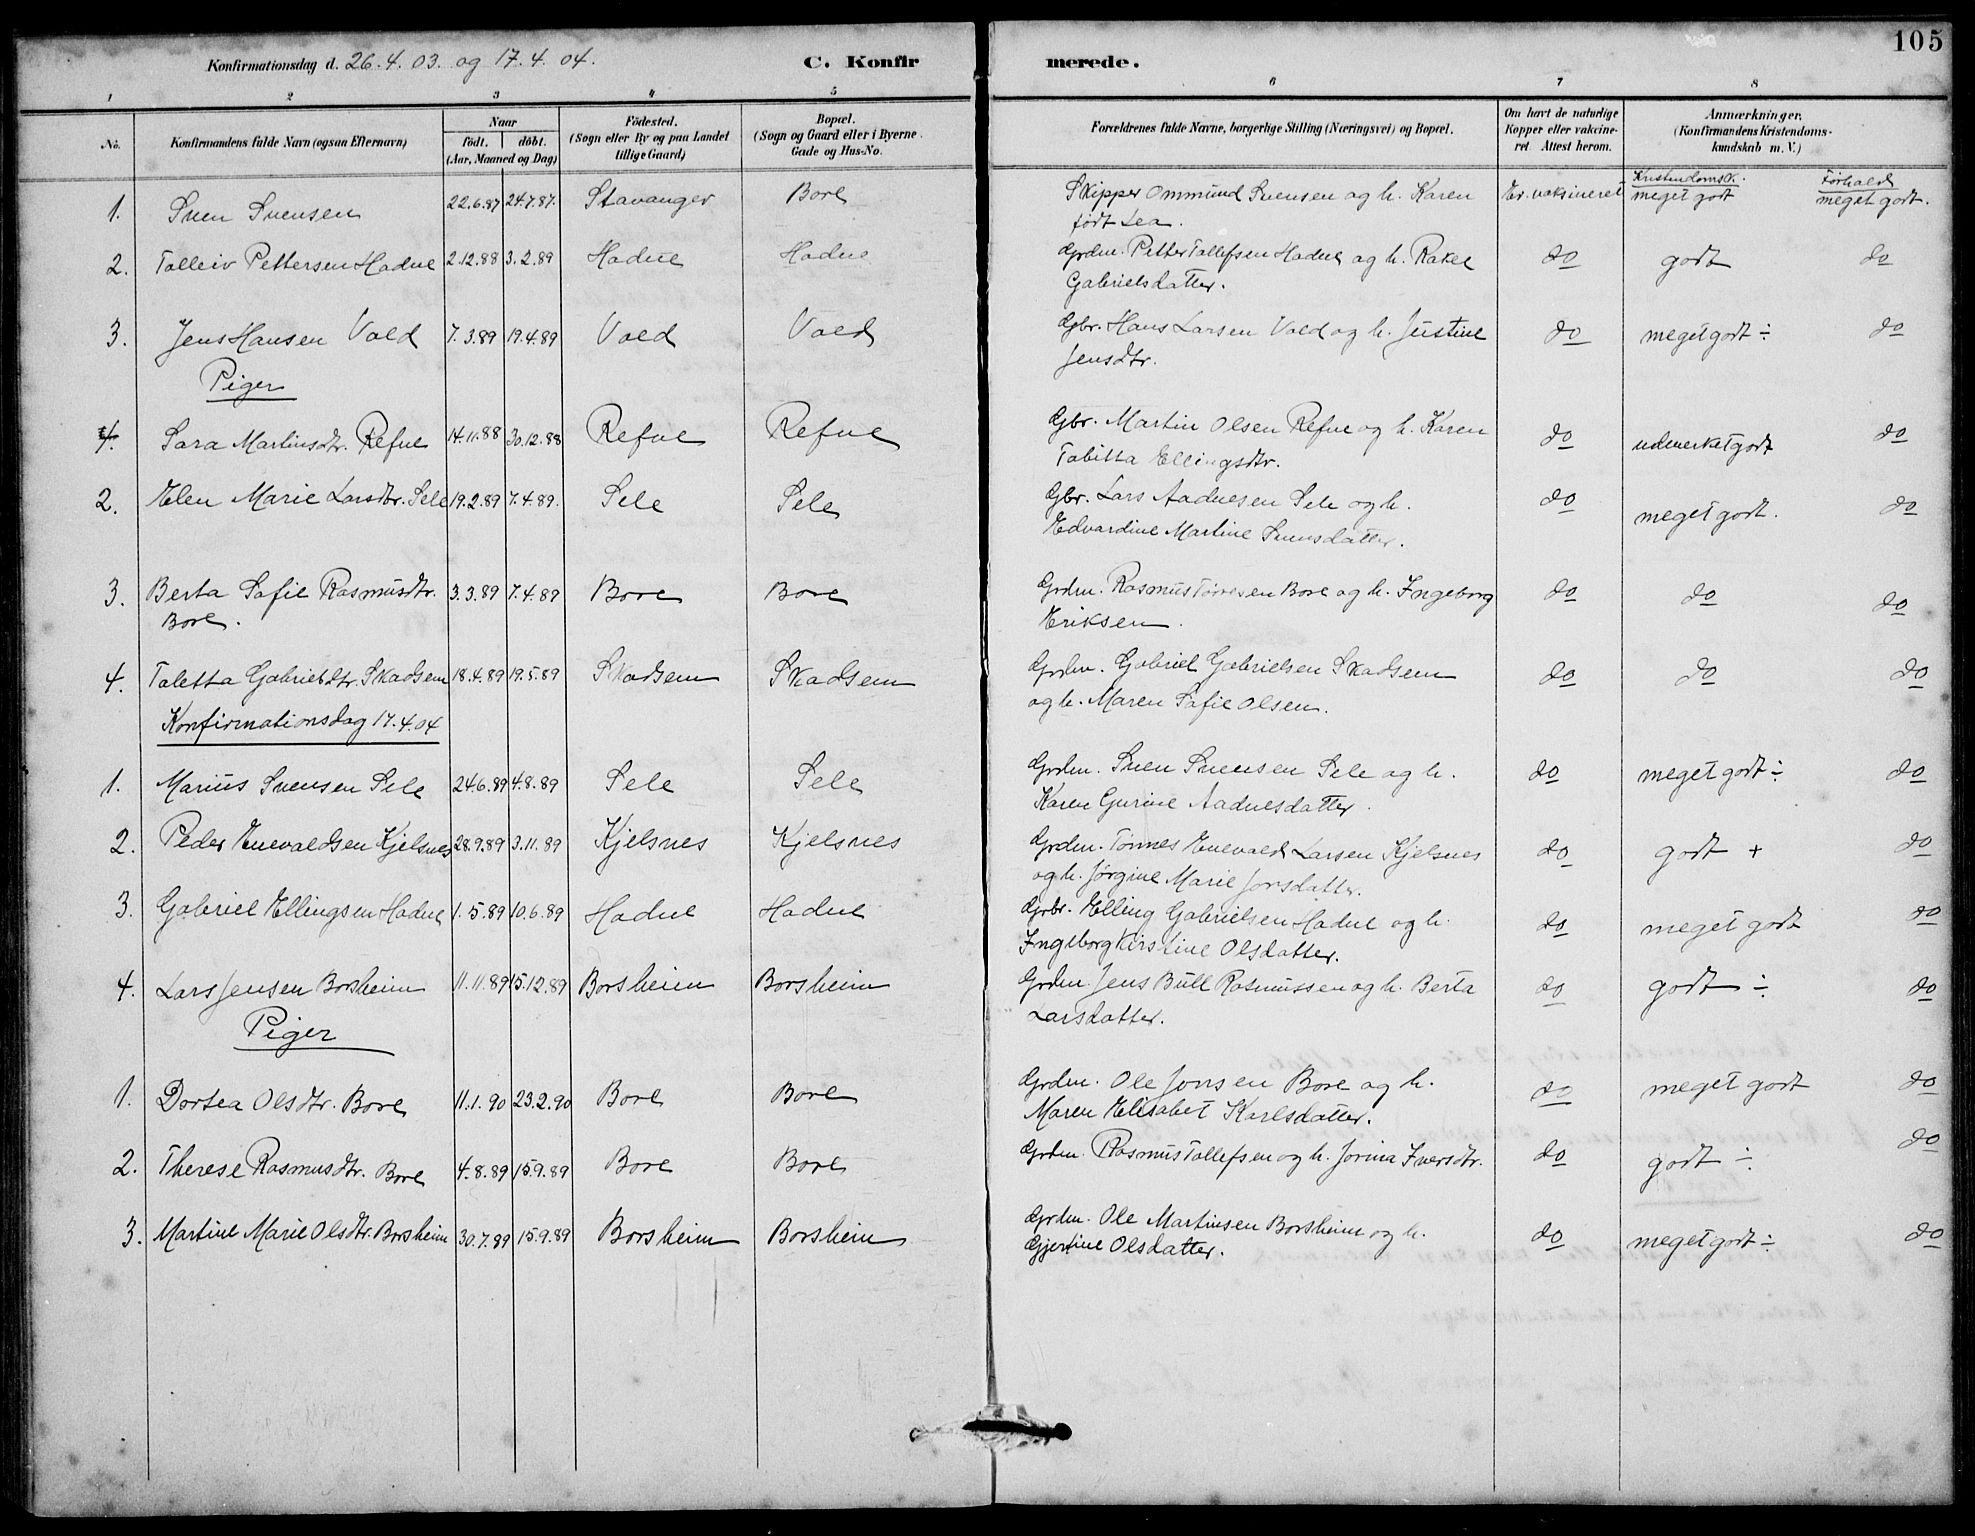 105
Konfirmationsdag d. 26.4.03. og 17.4.04.
C. Konfirmerede.
1 2 3 4 5 6 7 8
No. Konfirmandens fulde Navn (ogsaa Efternavn) Naar født. døbt. (Aar, Maaned og Dag) Fødested. (Sogn eller By og paa Landet tillige Gaard) Bopæl. (Sogn og Gaard eller i Byerne Gade og Hus-No. Forældrenes fulde Navne, borgerlige Stilling (Næringsvei) og Bopæl. Om havt de naturlige Kopper eller vakcineret Attest herom. Anmærkninger, (Konfirmandens Kristendomskundskab m. V.)
Kristendomsk. Forhold
1. Sven Svensen 22.6.87 24.7.87. Stavanger Bore Skipper Ommund Svensen og h. Karen Er vaksineret meget godt meget godt.
født Lea.
2. Tolleiv Pettersen Hadne 2.12.88 3.2.89 Hadne Hadne Grdm. Petter Tollefsen Hadne og h. Rakel do godt do
Gabrielsdatter.
3. Jens Hansen Vold 7.3.89 19.4.89 Vold Vold Gbr. Hans Larsen Vold og h. Justine do meget godt ÷ do
Jensdtr.
Piger
4. Sara Martinsdtr. Refne 14.11.88 30.12.88 Refne Refne Gbr. Martin Olsen Refne og h. Karen do udmerket godt do
Tabitta Ellingsdtr.
2. Elen Marie Larsdtr. Sele 19.2.89 7.4.89. Sele Sele Gbr. Lars Aadnesen Sele og h. do meget godt. do
Edvardine Martine Svensdatter.
3. Berta Sofie Rasmusdtr. 3.3.89 7.4.89 Bore Bore Grdm. Rasmus Tørresen Bore og h. Ingeborg do do do
Bore. Eriksen.
4. Taletta Gabrielsdtr. Skadsem 18.4.89 19.5.89 Skadsem Skadsem Grdm. Gabriel Gabrielsen Skadsem do do do
og h. Maren Sofie Olsen.
Konfirmationsdag 17.4.04
1. Marius Svensen Sele 24.6.89 4.8.89 Sele Sele Grdm. Sven Svensen Sele og h. do meget godt ÷ do
Karen Gurine Aadnesdatter.
2. Peder Enevaldsen Kjelsnes 28.9.89 3.11.89 Kjelsnes Kjelsnes Grdm. Tønnes Enevald Larsen Kjelsnes do godt + do
og h. Jørgine Marie Jonsdatter.
3. Gabriel Ellingsen Hadne 1.5.89 10.6.89 Hadne Hadne Grbr. Elling Gabrielsen Hadne og h. do meget godt do
Ingeborg Kirstine Olsdatter.
4. Lars Jensen Borsheim 11.11.89 15.12.89 Borsheim Borsheim Grdm. Jens Bull Rasmussen og h. Berta do godt ÷ do
Larsdatter.
Piger
1. Dortea Olsdtr. Bore 11.1.90 23.2.90 Bore Bore Grdm. Ole Jonsen Bore og h. do meget godt do
Maren Elisabet Karlsdatter.
2. Therese Rasmusdtr. Bore 4.8.89 15.9.89 Bore Bore Grdm. Rasmus Tollefsen og h. Jorina Iversdtr. do godt ÷ do
3. Martine Marie Olsdtr. Borsheim 30.7.89 15.9.89 Borsheim Borsheim Grdm. Ole Martinsen Borsheim og h. do meget godt ÷ do
Gjertine Olsdatter.